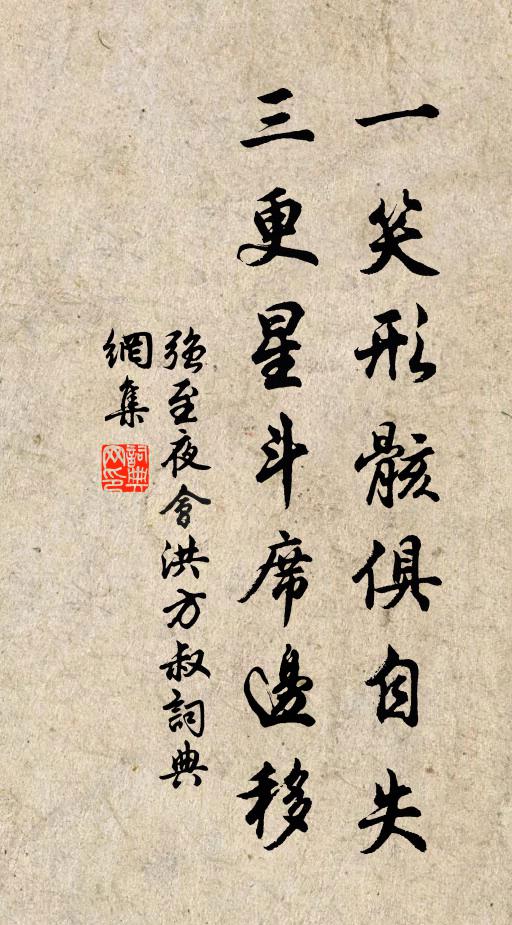 一笑形骸俱自失
三更星斗席邊移
強至夜會洪方叔詞典
網集
詞典
网印